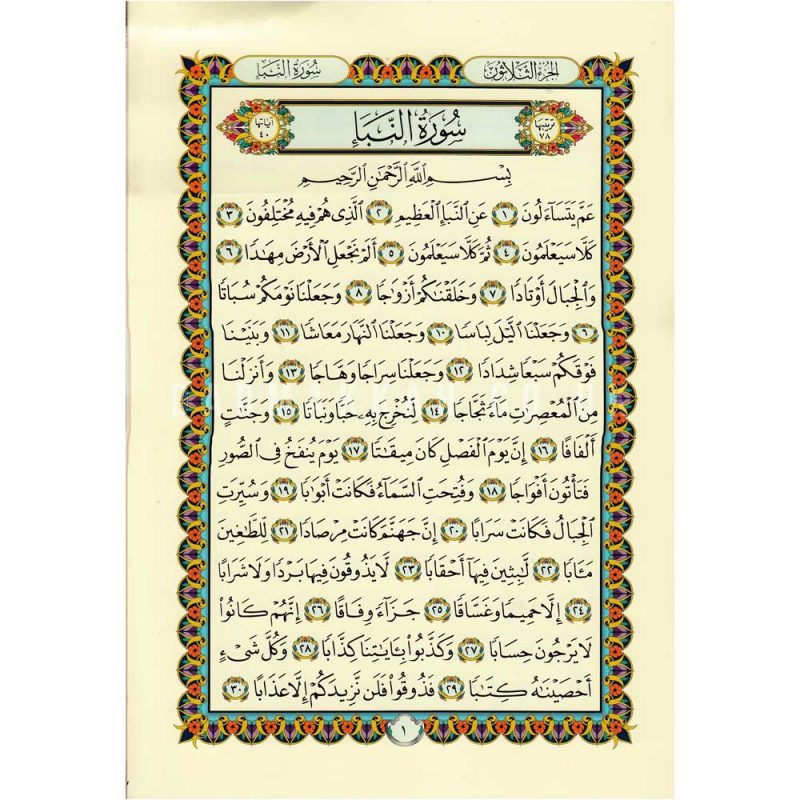 الجزء الثلاثون
سورة النبإ
ترتيبها ٧٨
سُورَةُ النَّبَإِ
آياتها ٤٠
بِسْمِ ٱللَّهِ ٱلرَّحْمَٰنِ ٱلرَّحِيمِ
عَمَّ يَتَسَآءَلُونَ ١ عَنِ ٱلنَّبَإِ ٱلْعَظِيمِ ٢ ٱلَّذِى هُمْ فِيهِ مُخْتَلِفُونَ ٣
كَلَّا سَيَعْلَمُونَ ٤ ثُمَّ كَلَّا سَيَعْلَمُونَ ٥ أَلَمْ نَجْعَلِ ٱلْأَرْضَ مِهَٰدًا ٦
وَٱلْجِبَالَ أَوْتَادًا ٧ وَخَلَقْنَٰكُمْ أَزْوَٰجًا ٨ وَجَعَلْنَا نَوْمَكُمْ سُبَاتًا
٩ وَجَعَلْنَا ٱلَّيْلَ لِبَاسًا ١٠ وَجَعَلْنَا ٱلنَّهَارَ مَعَاشًا ١١ وَبَنَيْنَا
فَوْقَكُمْ سَبْعًا شِدَادًا ١٢ وَجَعَلْنَا سِرَاجًا وَهَّاجًا ١٣ وَأَنزَلْنَا
مِنَ ٱلْمُعْصِرَٰتِ مَآءً ثَجَّاجًا ١٤ لِّنُخْرِجَ بِهِۦ حَبًّا وَنَبَاتًا ١٥ وَجَنَّٰتٍ
أَلْفَافًا ١٦ إِنَّ يَوْمَ ٱلْفَصْلِ كَانَ مِيقَٰتًا ١٧ يَوْمَ يُنفَخُ فِى ٱلصُّورِ
فَتَأْتُونَ أَفْوَاجًا ١٨ وَفُتِحَتِ ٱلسَّمَآءُ فَكَانَتْ أَبْوَٰبًا ١٩ وَسُيِّرَتِ
ٱلْجِبَالُ فَكَانَتْ سَرَابًا ٢٠ إِنَّ جَهَنَّمَ كَانَتْ مِرْصَادًا ٢١ لِّلطَّٰغِينَ
مَـَٔابًا ٢٢ لَّٰبِثِينَ فِيهَآ أَحْقَابًا ٢٣ لَّا يَذُوقُونَ فِيهَا بَرْدًا وَلَا شَرَابًا
٢٤ إِلَّا حَمِيمًا وَغَسَّاقًا ٢٥ جَزَآءً وِفَاقًا ٢٦ إِنَّهُمْ كَانُوا۟
لَا يَرْجُونَ حِسَابًا ٢٧ وَكَذَّبُوا۟ بِـَٔايَٰتِنَا كِذَّابًا ٢٨ وَكُلَّ شَىْءٍ
أَحْصَيْنَٰهُ كِتَٰبًا ٢٩ فَذُوقُوا۟ فَلَن نَّزِيدَكُمْ إِلَّا عَذَابًا ٣٠
١